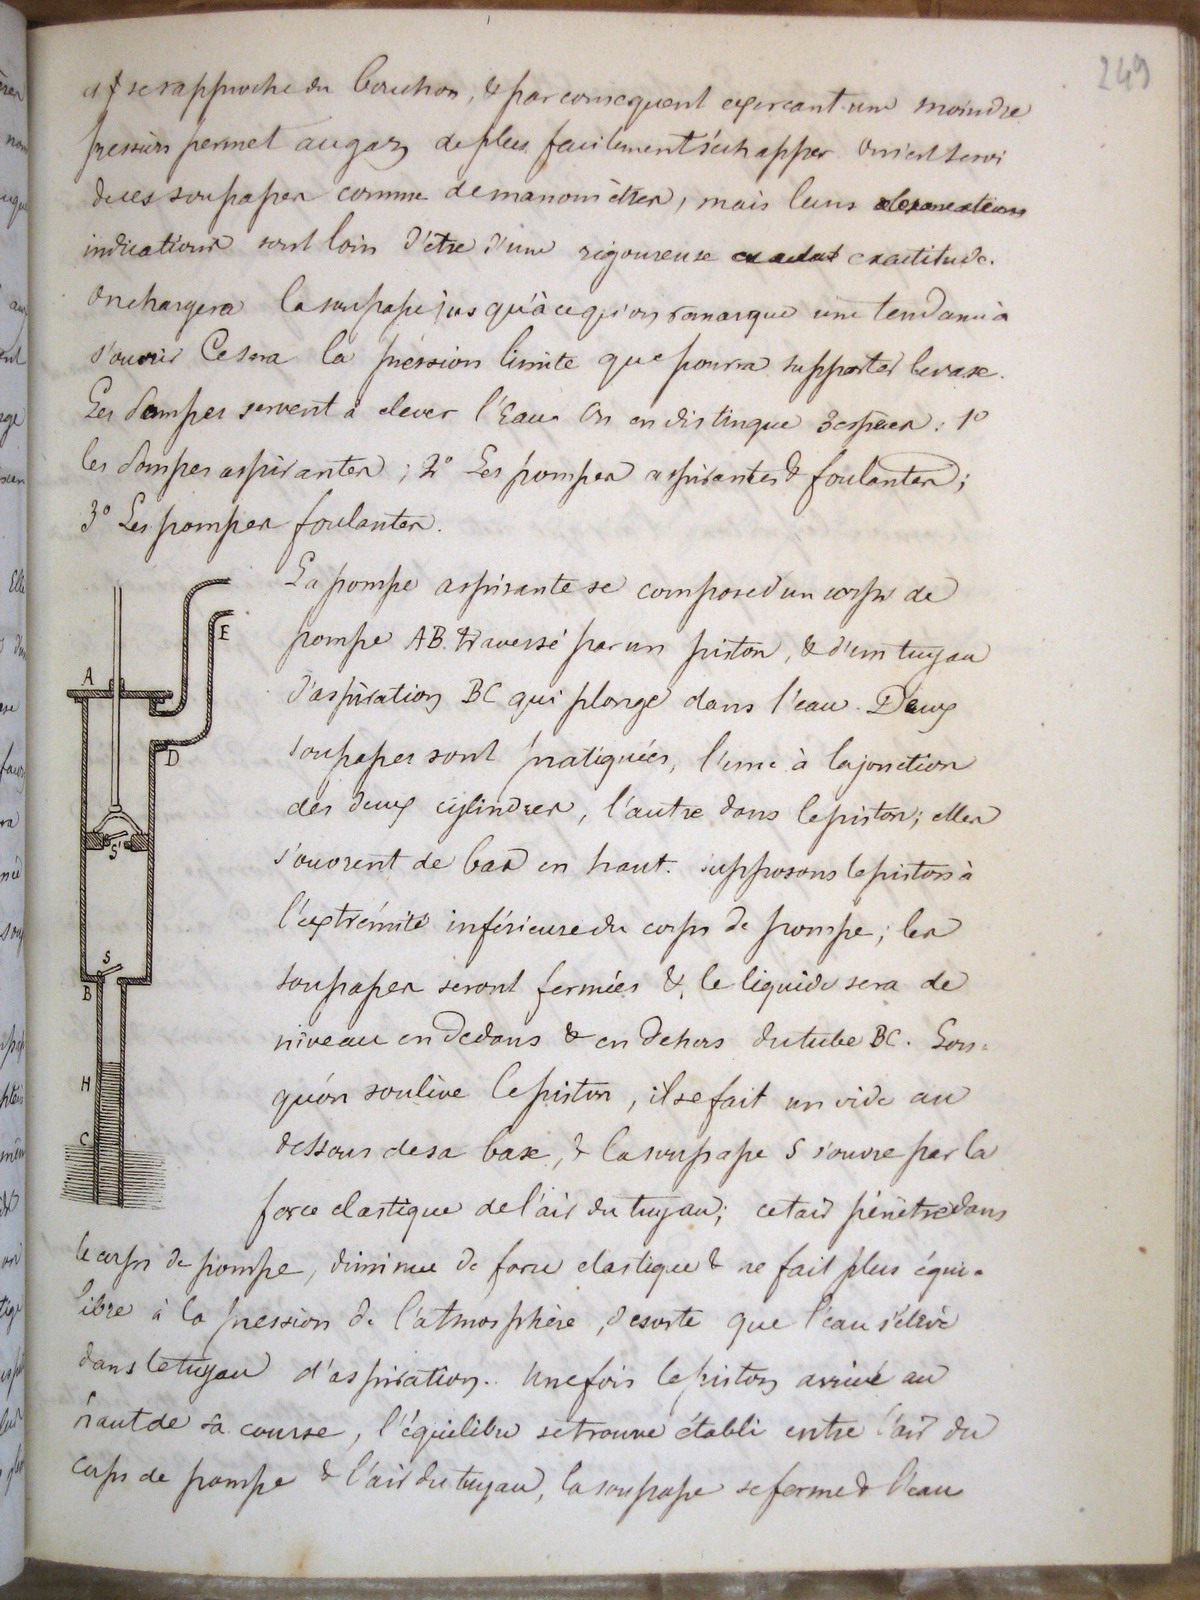 249
se rapproche du bouchon, & par consequent exercant une moindre
pression permet au gaz de plus facilement s'échapper on s'est servi
de ces soupapes comme de manomètres, mais leurs
indications sont loin d'être d'une rigoureuse exactitude.
On chargera la soupape jusqu'à ce qu'on remarque une tendance à
s'ouvrir Ce sera la préssion limite que pourra supporter le vase.
Les Pompes servent à elever l'Eau On en distingue 3 espèces : 1°
les Pompes aspirantes ; 2° Les pompes aspirantes & foulantes ;
3° Les pompes foulantes.
La pompe aspirante se compose d'un corps de
pompe AB. traversé par un piston, & d'un tuyau
d'aspiration BC qui plonge dans l'eau. Deux
soupapes sont pratiquées, l'une à la jonction
des deux cylindres, l'autre dans le piston; elles
s'ouvrent de bas en haut. supposons le piston à
l'extrémité inférieure du corps de pompe; les
soupapes seront fermées & le liquide sera de
niveau en dedans & en dehors du tube BC. Lors-
qu'on soulève le piston, il se fait un vide au
dessous de sa base, & la soupape S s'ouvre par la
force elastique de l'air du tuyau; cet air pénètre dans
le corps de pompe, diminue de force elastique & ne fait plus équi-
libre à la pression de l'atmosphère, de sorte que l'eau s'élève
dans le tuyau d'aspiration. Une fois le piston arrivé au
haut de sa course, l'équilibre se trouve établi entre l'air du
corps de pompe & l'air du tuyau, la soupape se ferme & l'eau
E
A
D
S'
S
B
H
C